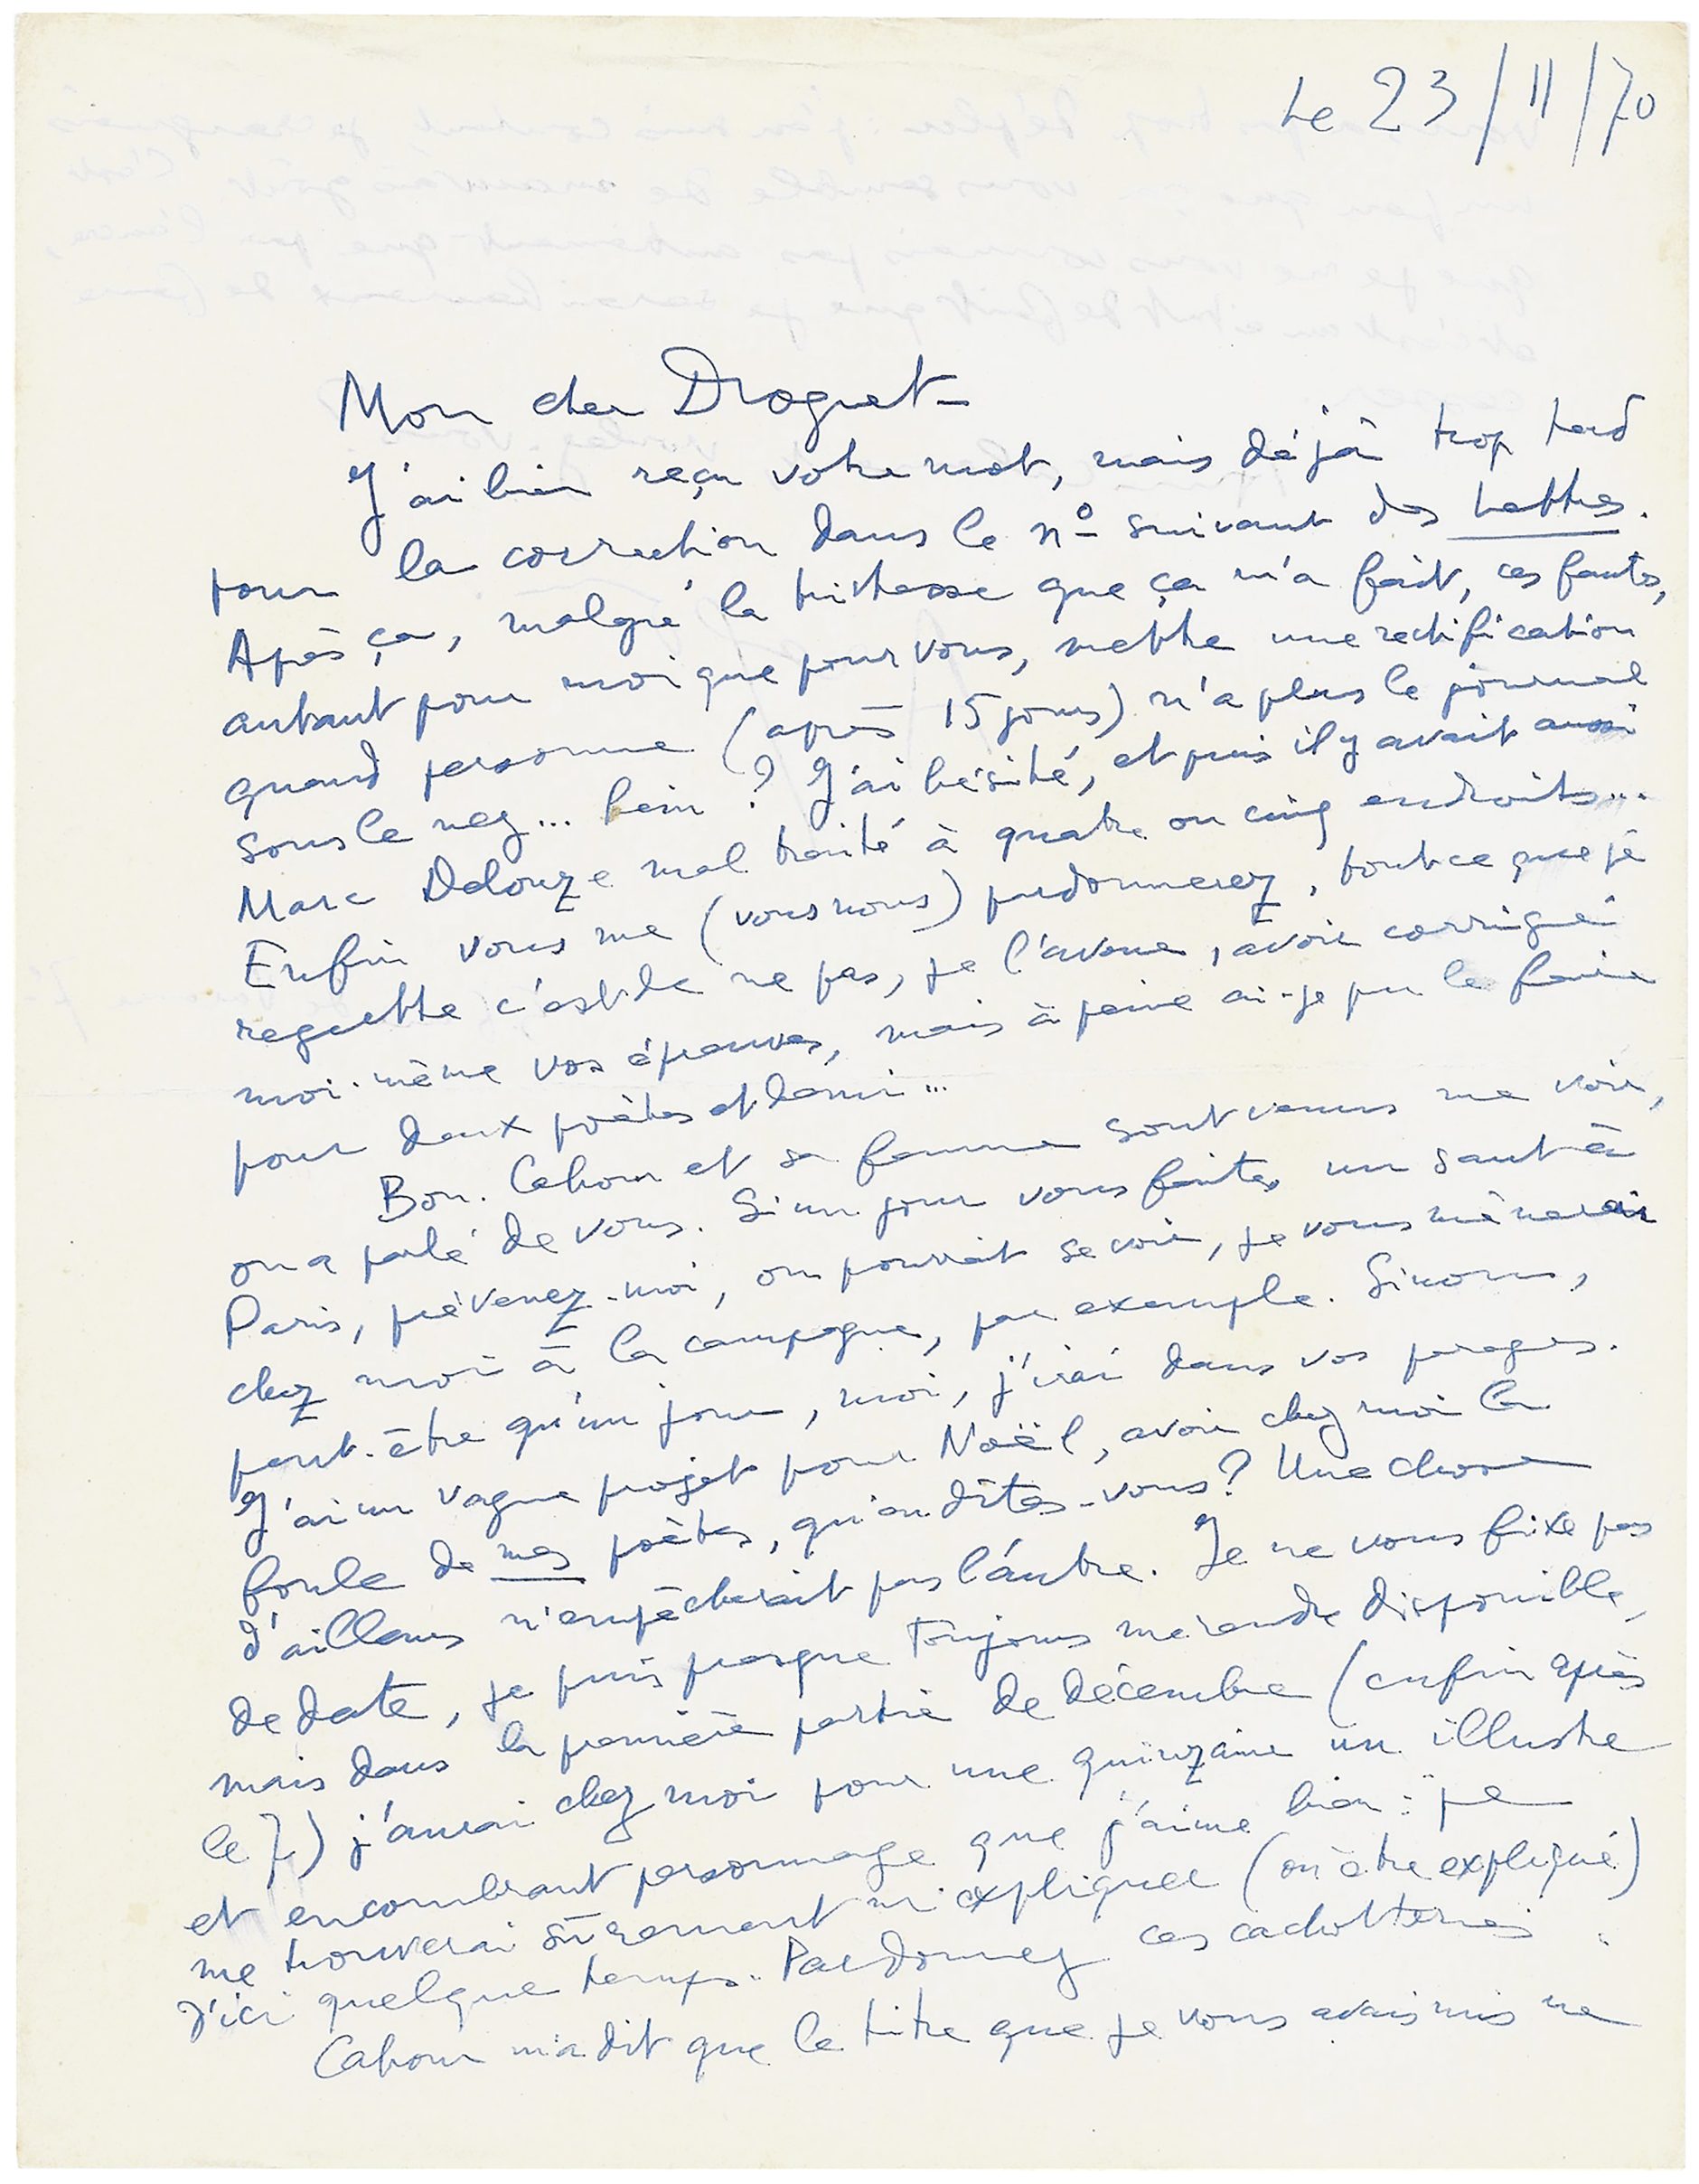 Le 23/11/70
Mon cher Droguet –
J'ai bien reçu votre mot, mais déjà trop tard
pour la correction dans le nº suivant des Lettres.
Après ça, malgré la tristesse que ça m'a fait, ces fautes,
autant pour moi que pour vous, mettre une rectification
quand personne (après 15 jours) n'a plus le journal
sous le nez... hein ? J'ai hésité, et puis il y avait aussi
Marc Delouze mal traité à quatre ou cinq endroits...
Enfin vous me (vous nous) pardonnerez, tout ce que je
regrette c'est de ne pas, je l'avoue, avoir corrigé
moi-même vos épreuves, mais à peine ai-je pu le faire
pour deux poètes et demi...
Bon. Cahour et sa femme sont venus me voir,
on a parlé de vous. Si un jour vous faites un saut à
Paris, prévenez-moi, on pourrait se voir, je vous mènerai
chez moi à la campagne, par exemple. Sinon,
peut-être qu'un jour, moi, j'irai dans vos parages.
J'ai un vague projet pour Noël, avoir chez moi la
foule de mes poètes, qu'en dites-vous ? Une chose
d'ailleurs n'empêcherait pas l'autre. Je ne vous fixe pas
de date, je puis presque toujours me rendre disponible,
mais dans la première partie de décembre (enfin après
le 7) j'aurai chez moi pour une quinzaine un illustre
et encombrant personnage que j'aime bien : je
me trouverai sûrement m'expliquer (ou être expliqué)
d'ici quelque temps. Pardonnez ces cachotteries.
Cahour m'a dit que le titre que je vous avais mis ne